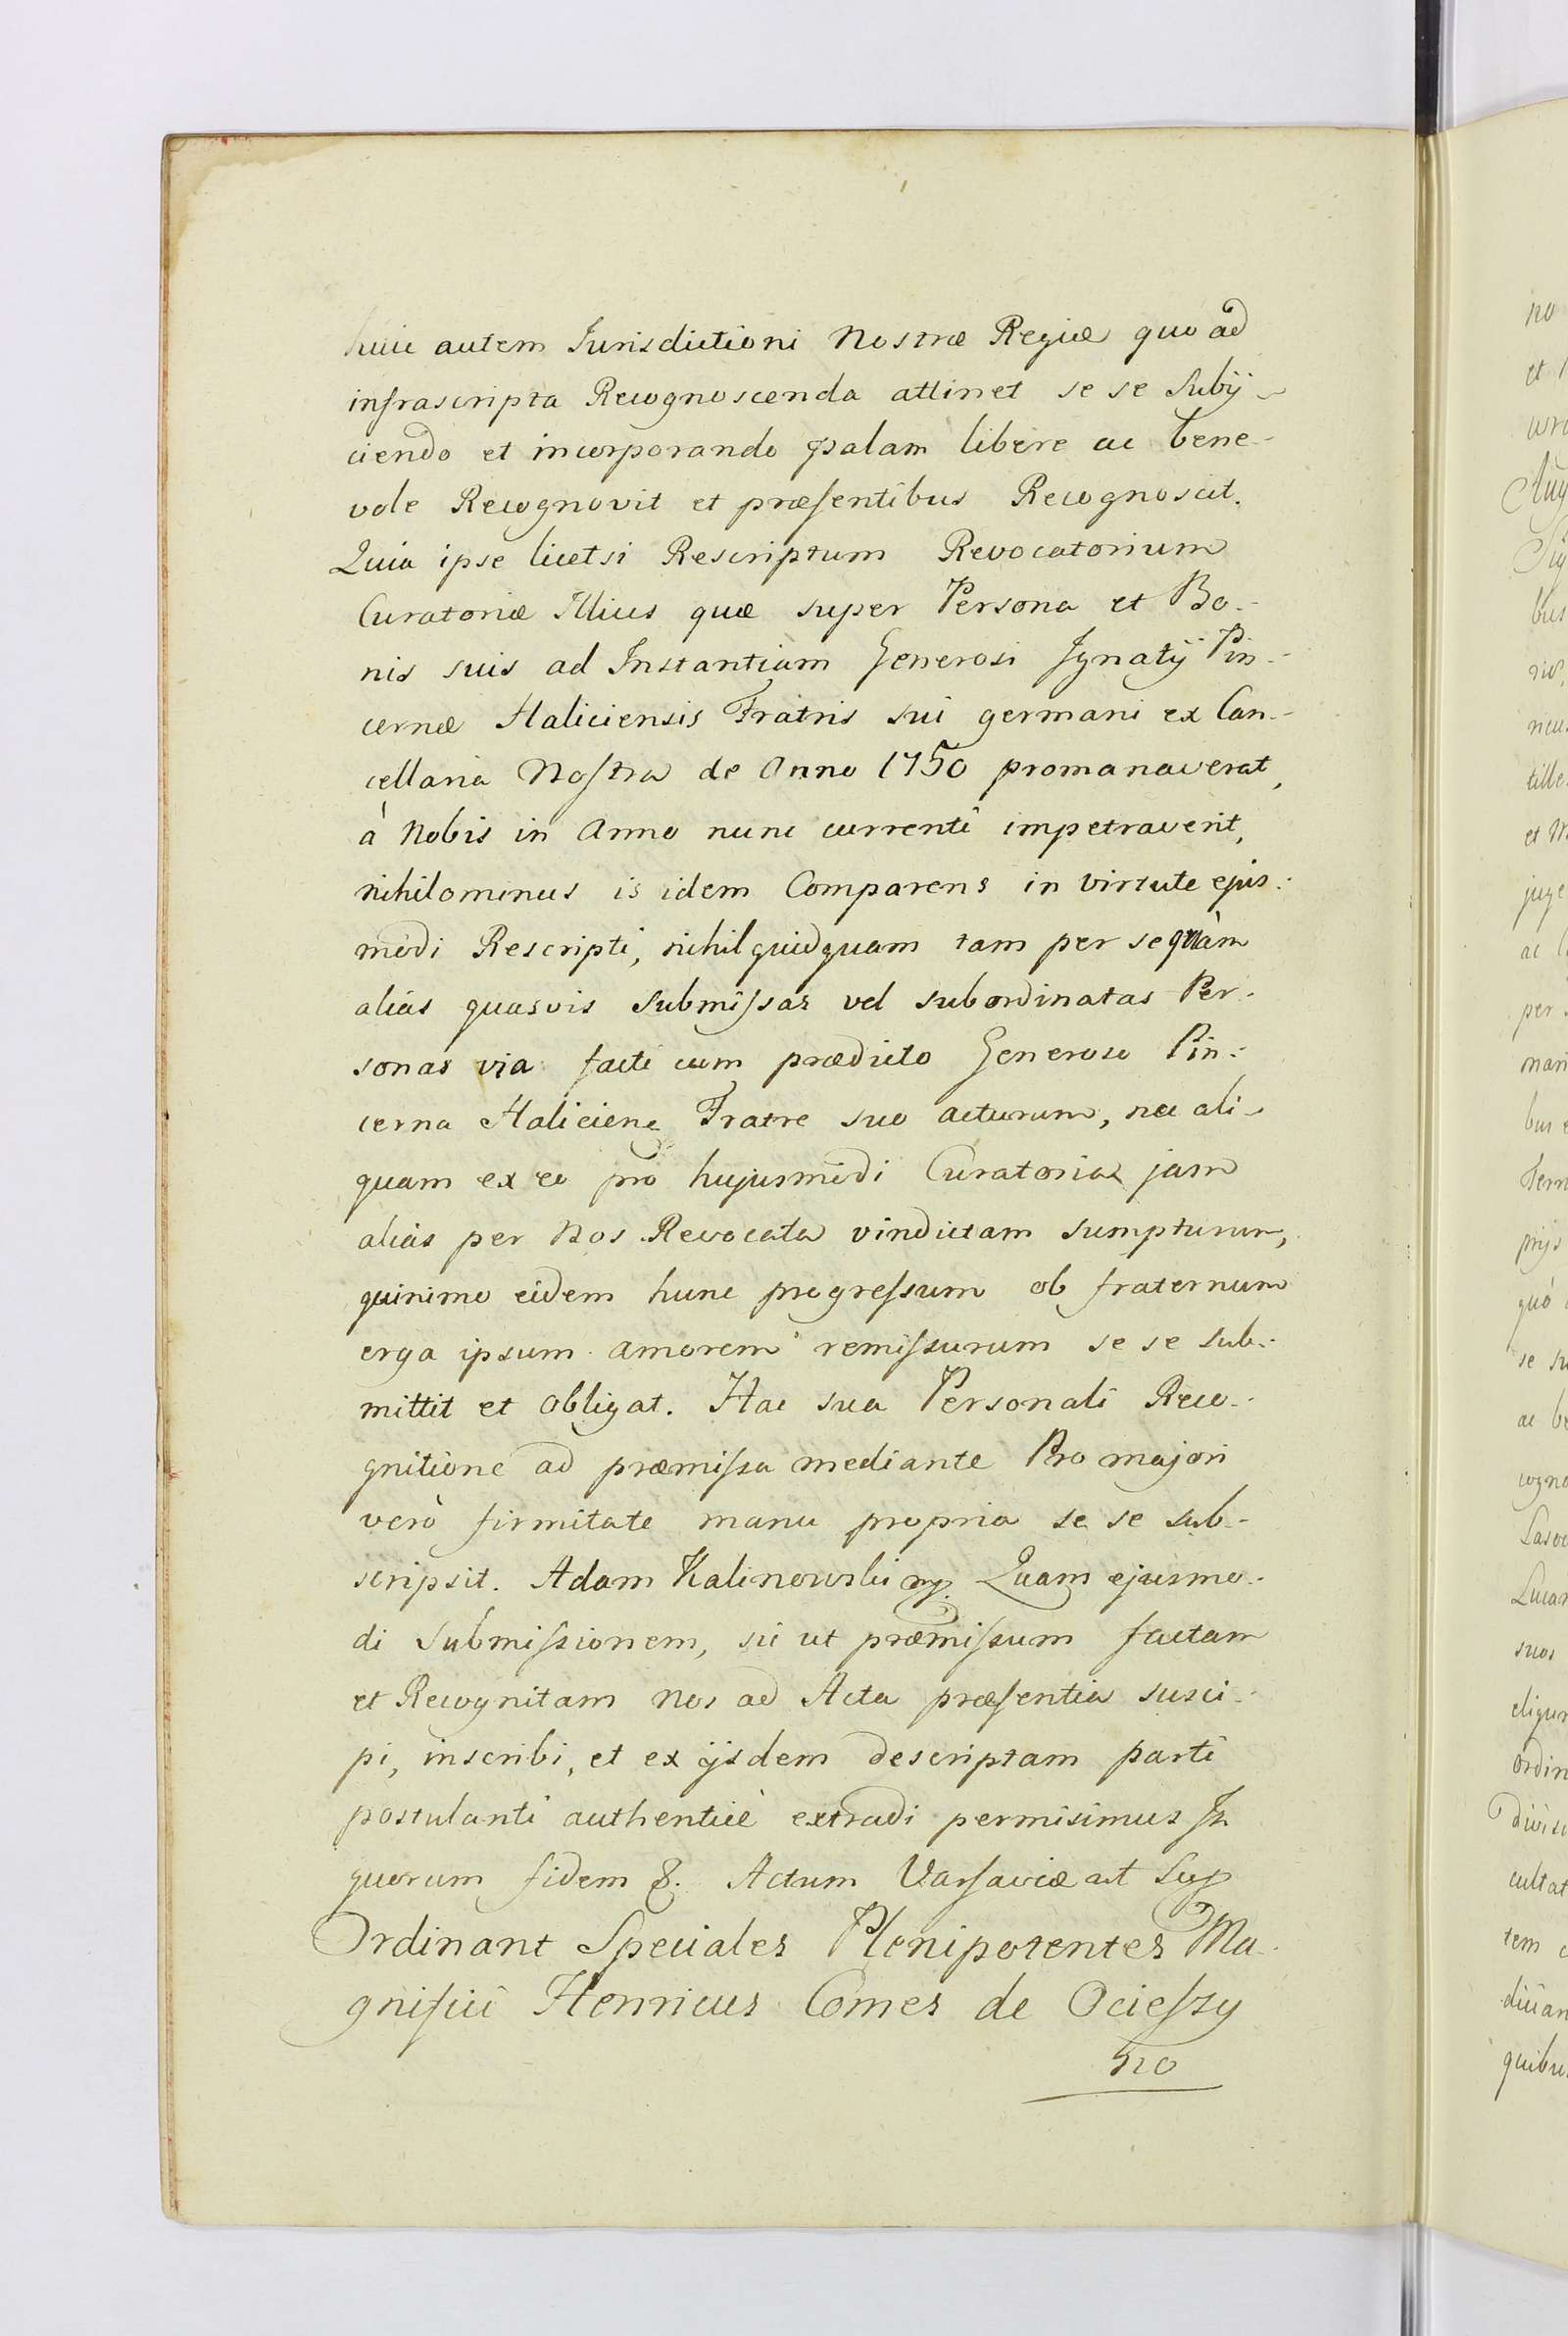 huic autem Jurisdictioni Nostræ Regiæ quo ad
infrascripta Recognoscenda attinet se se Subij-
ciendo et incorporando palam libere ac bene-
vole Recognovit et præsentibus Recognoscit.
Quia ipse licetsi Rescriptum Revocatorium
Curatoriæ Illius quæ super Persona et Bo-
nis suis ad Instantiam Generosi Ignatij Pin-
cernæ Haliciensis Fratris sui germani ex Can-
cellaria Nostra de Anno 1750 promanaverat,
à Nobis in Anno nunc currenti impetraverit,
nihilominus is idem Comparens in virtute ejus-
modi Rescripti, nihil quidquam tam per se quàm
aliàs quasvis submissas vel subordinatas Per-
sonas via facti cum prædicto Generoso Pin-
cerna Halicien Fratre suo acturum, nec ali-
quam ex eo pro hujusmodi Curatoria jam
aliàs per Nos Revocata vindictam sumpturum,
quinimo eidem hunc progressum ob fraternum
erga ipsum amorem remissurum se se sub-
mittit et obligat. Hac sua Personali Reco-
gnitione ad præmissa mediante Pro majori
verò firmitate manu propria se se sub-
scripsit. Adam Kalinowski mp. Quam ejusmo-
di Submissionem, sic ut præmissum factam
et Recognitam Nos ad Acta præsentia susci-
pi, inscribi, et ex ijsdem descriptam parti
postulanti authenticè extradi permisimus In
quorum fidem &. Actum Varsaviæ ut Sup
Ordinant Speciales Plenipotentes Ma-
gnifici Henricus Comes de Ociessy
no